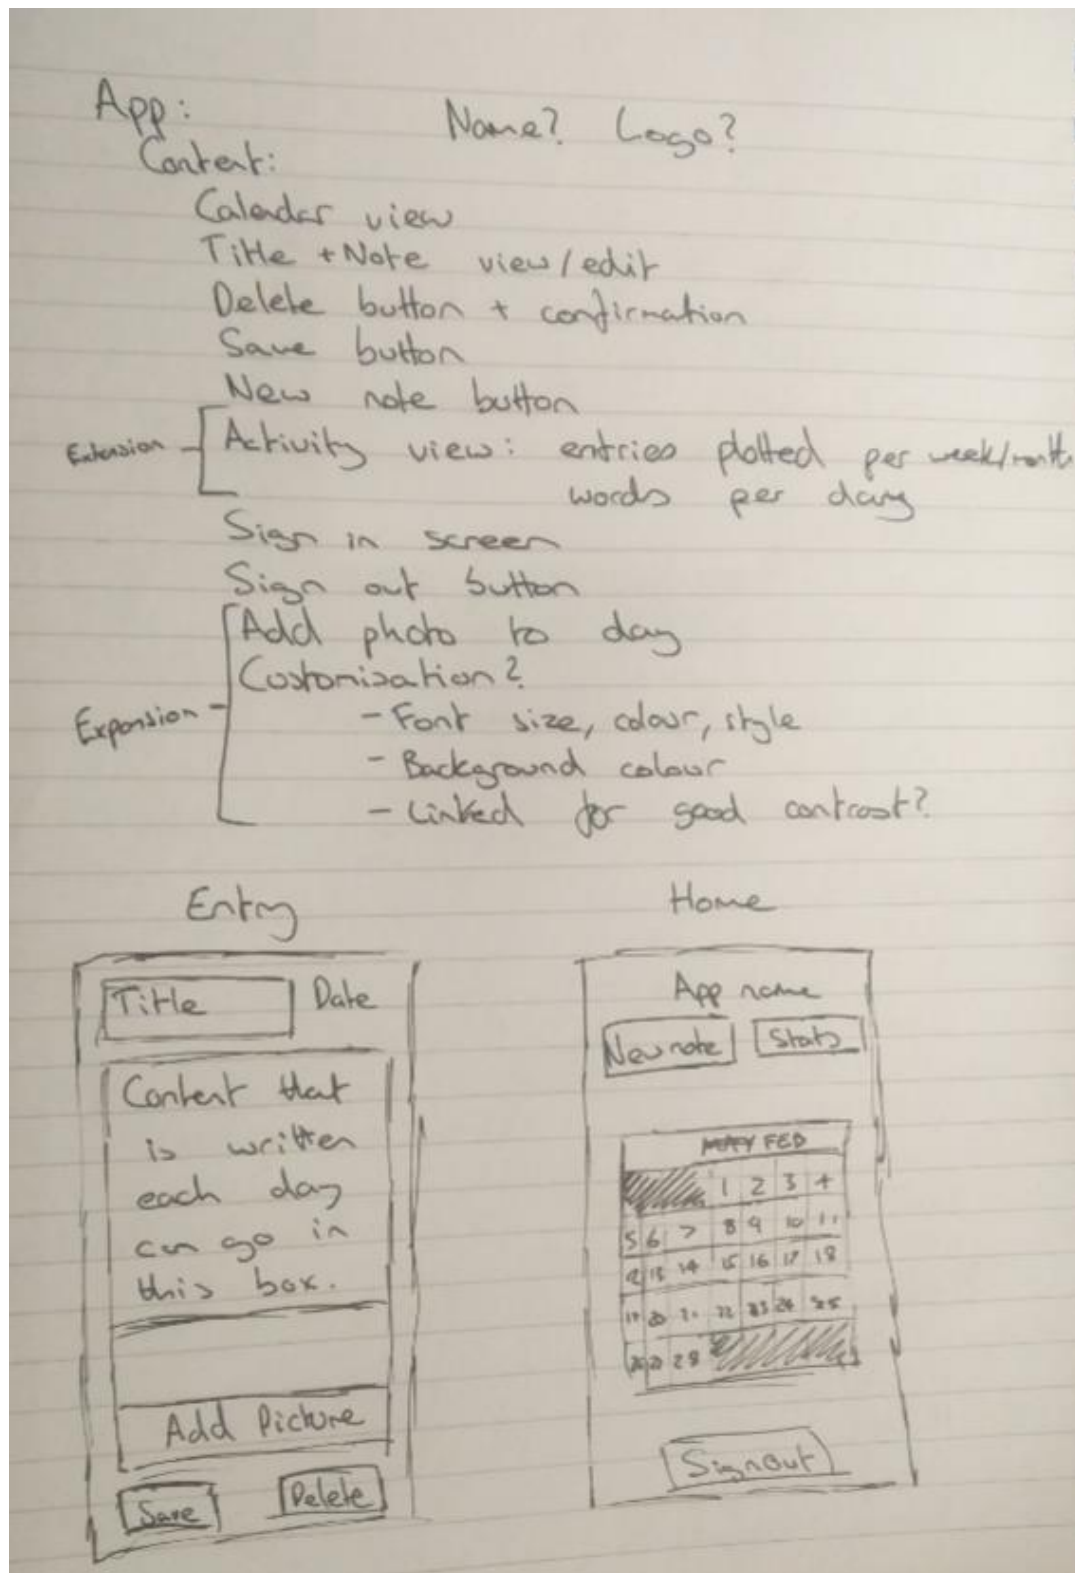 App:
Name? Logo?
Content:
Calendar view
Title + Note view/edit
Delete button + confirmation
Save button
New note button
Extension
Activity view: entries plotted per week/month
words per day
Sign in screen
Sign out button
Add photo to day
Customisation?
Expansion
- Font size, colour, style
- Background colour
- Linked for good contrast?
Entry
Title
Date
Content that
is written
each day
can go in
this box.
Add Picture
Save
Delete
Home
App name
New note
Stats
FEB
1 2 3 4
5 6 7 8 9 10 11
12 13 14 15 16 17 18
19 20 21 22 23 24 25
26 27 28
Sign Out